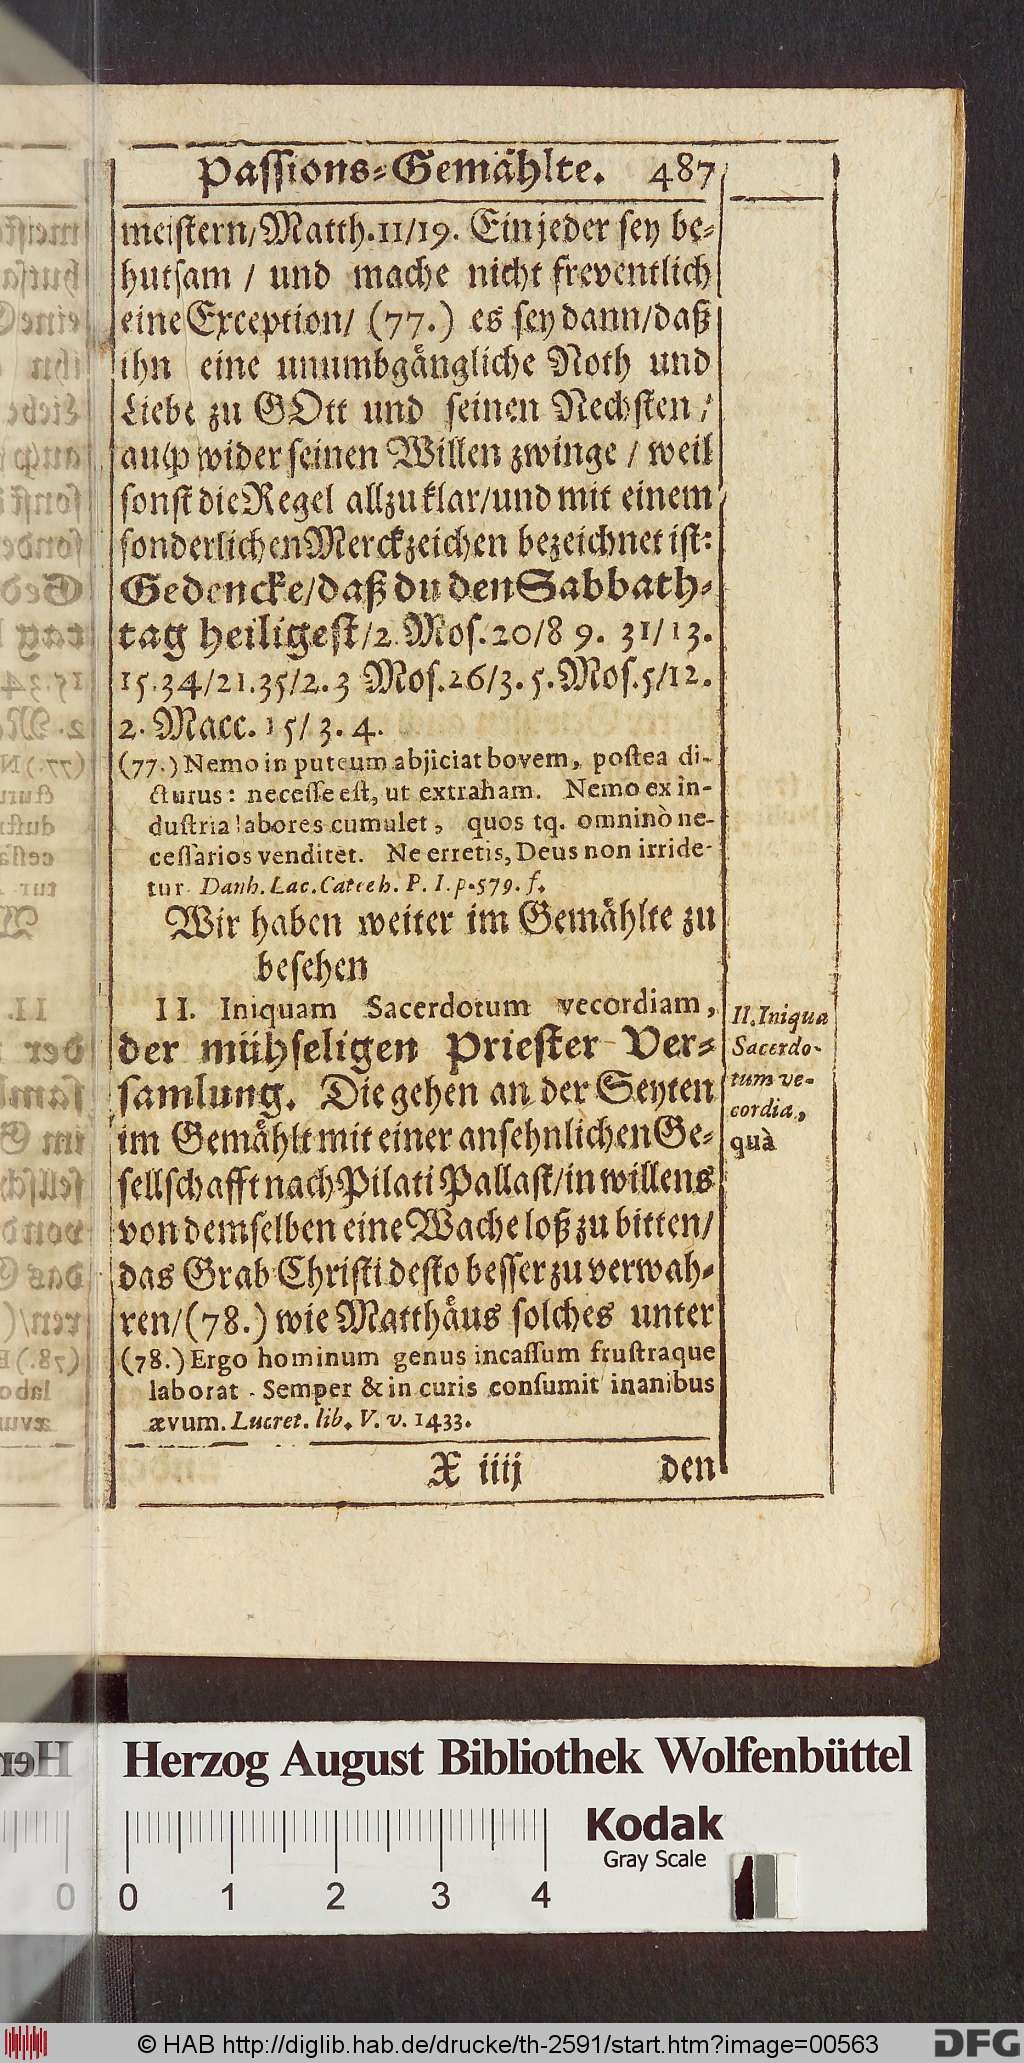 Passions-Gemählte. 487
meistern/Matth.11/19. Ein jeder sey be-
hutsam / und mache nicht freventlich
eine Exception/ (77.) es sey dann/daß
ihn eine unumbgängliche Noth und
Liebe zu GOtt und seinen Nechsten /
auch wider seinen Willen zwinge / weil
sonst die Regel allzu klar/und mit einem
sonderlichen Merckzeichen bezeichnet ist:
Gedencke/daß du den Sabbath-
tag heiligest/2. Mos.20/8 9. 31/13.
15.34/21.35/2.3 Mos.26/3. 5.Mos.5/12.
2. Macc. 15/ 3. 4.
(77.) Nemo in puteum abjiciat bovem, postea di-
cturus: necesse est, ut extraham. Nemo ex in-
dustria labores cumulet, quos tq. omninò ne-
cessarios venditet. Ne erretis, Deus non irride-
tur Danh. Lac. Catech. P. I. p.579. f.
Wir haben weiter im Gemählte zu
besehen
II. Iniquam Sacerdotum vecordiam,
der mühseligen Priester Ver-
samlung. Die gehen an der Seyten
im Gemählt mit einer ansehnlichen Ge-
sellschafft nach Pilati Pallast/in willens
von demselben eine Wache loß zu bitten/
das Grab Christi desto besser zu verwah-
ren/(78.) wie Matthäus solches unter
(78.) Ergo hominum genus incassum frustraque
laborat. Semper & in curis consumit inanibus
ævum. Lucret. lib. V. v. 1433.
X iiij den
II. Iniqua
Sacerdo-
tum ve-
cordia,
quà
Herzog August Bibliothek Wolfenbüttel
Kodak
Gray Scale
0 0 1 2 3 4
© HAB http://diglib.hab.de/drucke/th-2591/start.htm?image=00563
DFG